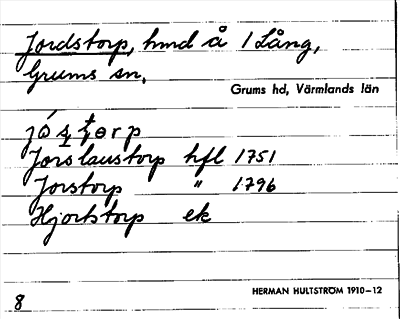 Jordstorp, hmd å 1 Lång,
Grums sn.
Grums hd, Värmlands län
Jorslaustorp hfl 1751
Jorstorp " 1796
Hjortstorp ek
HERMAN HULTSTRÖM 1910–12
8